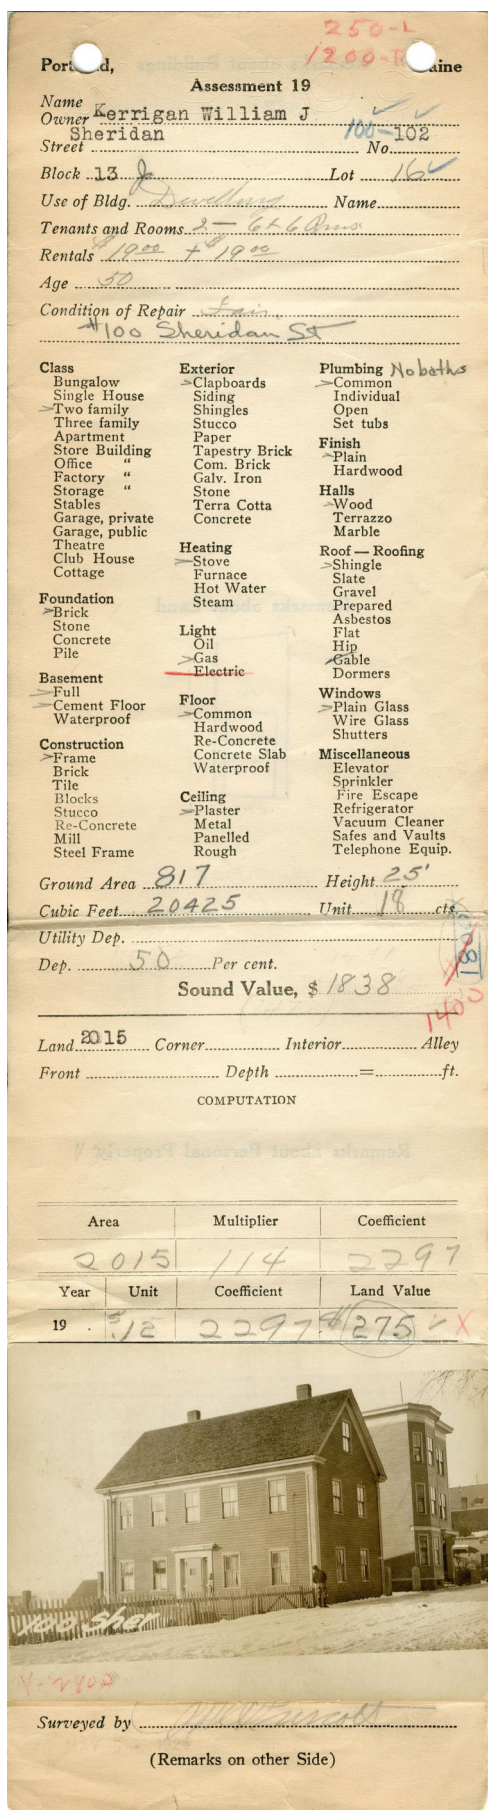 250-L
1200-
Portland, Maine
Assessment 19
Name
Owner Kerrigan William J
Sheridan 100-102
Street No.
Block 13 J Lot 16
Use of Bldg. Dwelling Name
Tenants and Rooms 2 - 6 & 6 Rms
Rentals $19.00 + $19.00
Age 50
Condition of Repair Fair
#100 Sheridan St
Class
Bungalow
Single House
Two family
Three family
Apartment
Store Building
Office "
Factory "
Storage "
Stables
Garage, private
Garage, public
Theatre
Club House
Cottage
Foundation
Brick
Stone
Concrete
Pile
Basement
Full
Cement Floor
Waterproof
Construction
Frame
Brick
Tile
Blocks
Stucco
Re-Concrete
Mill
Steel Frame
Exterior
Clapboards
Siding
Shingles
Stucco
Paper
Tapestry Brick
Com. Brick
Galv. Iron
Stone
Terra Cotta
Concrete
Heating
Stove
Furnace
Hot Water
Steam
Light
Oil
Gas
Electric
Floor
Common
Hardwood
Re-Concrete
Concrete Slab
Waterproof
Ceiling
Plaster
Metal
Panelled
Rough
Plumbing No baths
Common
Individual
Open
Set tubs
Finish
Plain
Hardwood
Halls
Wood
Terrazzo
Marble
Roof — Roofing
Shingle
Slate
Gravel
Prepared
Asbestos
Flat
Hip
Gable
Dormers
Windows
Plain Glass
Wire Glass
Shutters
Miscellaneous
Elevator
Sprinkler
Fire Escape
Refrigerator
Vacuum Cleaner
Safes and Vaults
Telephone Equip.
Ground Area 817 Height 25'
Cubic Feet 20425 Unit 18 cts.
Utility Dep.
Dep. 50 Per cent.
Sound Value, $ 1838
1400
Land 2015 Corner Interior Alley
Front Depth = ft.
COMPUTATION
Remarks about Personal Property
Area Multiplier Coefficient
2015 114 2297
Year Unit Coefficient Land Value
19 . $.12 2297 $275 X
100 Sher
Surveyed by
(Remarks on other Side)